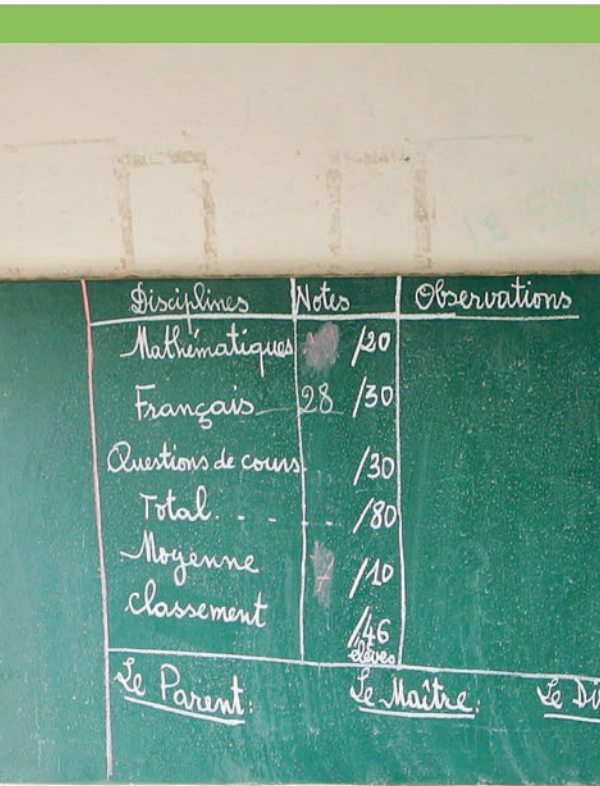 Disciplines Notes Observations
Mathématiques /20
Français 28 /30
Questions de cours /30
Total. . - - . .. /80
Moyenne /10
classement /46
élèves
Le Parent: Le Maître: Le Di